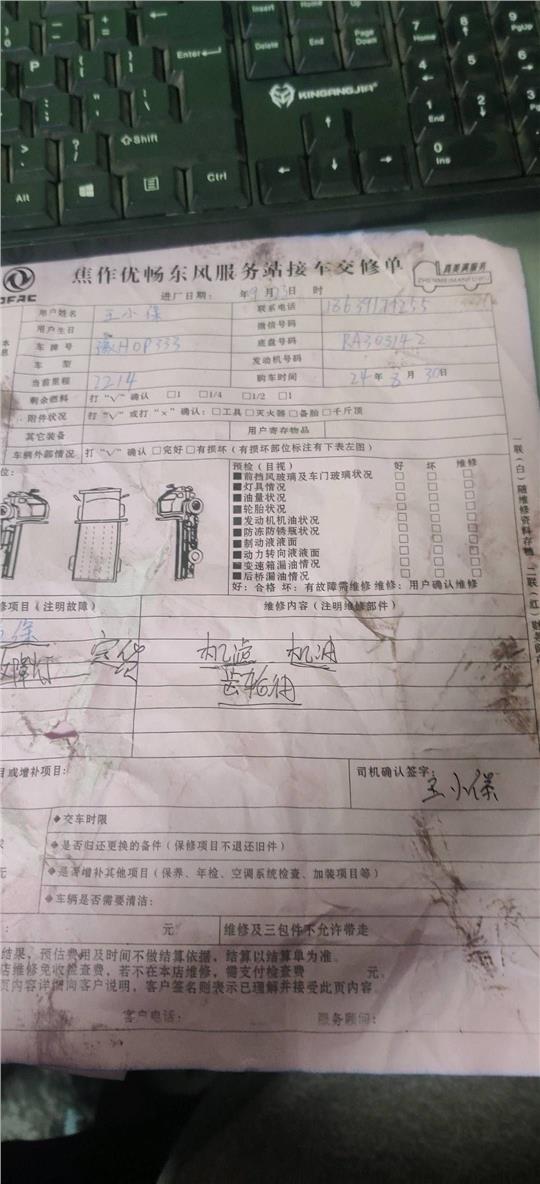 Insert
Home
Page Up
Delete
End
Page Down
7 Home
8
9 PgUp
4
5
6
1 End
2
3
0 Ins
Enter
P
Shift
Alt
Ctrl
KINGANGJIA
焦作优畅东风服务站接车交修单
真美满服务
进厂日期: 年9月23日 时
用户姓名 王小保 联系电话
用户生日 微信号码
车牌号 豫H0P333 底盘号码 RA303142
车型 发动机号码
当前里程 2214 购车时间 24年8月30日
剩余燃料 打"√"确认 □1 □1/4 □1/2 □1
附件状况 打"√"或打"×"确认:□工具□灭火器□备胎□千斤顶
其它装备 用户寄存物品
车辆外部情况 打"√"确认□完好□有损坏(有损坏部位标注有下表左图)
位:
预检(目视) 好 坏 维修
■前挡风玻璃及车门玻璃状况
■灯具情况
■油量状况
■轮胎状况
■发动机机油状况
■防冻防锈瓶状况
■制动液液面
■动力转向液液面
变速箱漏油情况
■后桥漏油情况
好:合格 坏:有故障需维修 维修:用户确认维修
一联(白)随维修资料存档
修项目(注明故障) 维修内容(注明维修部件)
保
故障灯 定货 机滤 机油
齿轮油
目或增补项目: 司机确认签字:
王小保
◆交车时限
◆是否归还更换的备件(保修项目不退还旧件)
◆是否增补其他项目(保养、年检、空调系统检查、加装项目等)
◆车辆是否需要清洁:
元 维修及三包件不允许带走
结果,预估费用及时间不做结算依据,结算以结算单为准。
店维修免收检查费,若不在本店维修,需支付检查费 元。
页内容详细向客户说明,客户签名则表示已理解并接受此页内容
客户电话: 服务顾问: